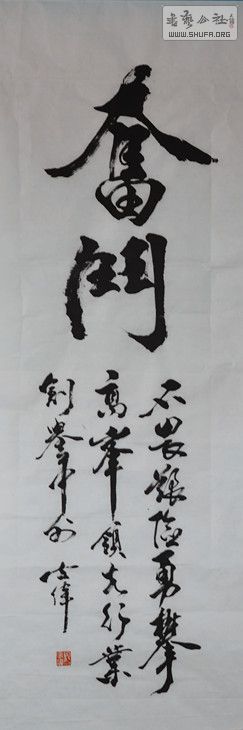 書藝公社
WWW.SHUFA.ORG
奮鬥
不畏艱險勇攀
高峯領先行業
創譽中外 偉